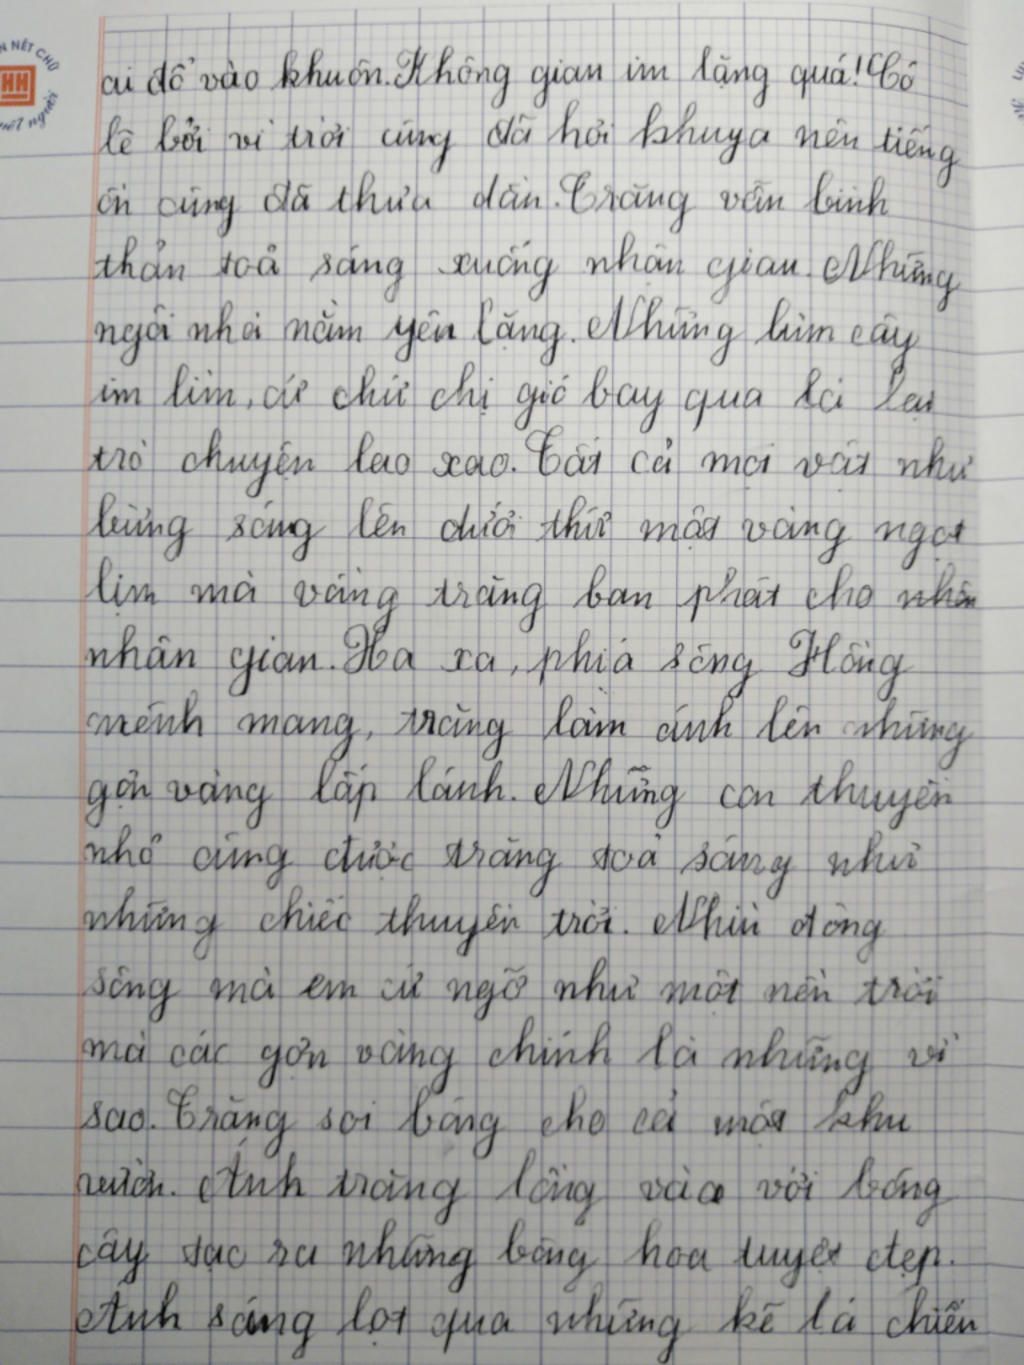 N NÉT CHỮ
HH
nết người
ai đổ vào khuôn. Không gian im lặng quá! Có
lẽ bởi vì trời cũng đã hơi khuya nên tiếng
ồn cũng đã thưa dần. Trăng vẫn bình
thản toả sáng xuống nhân gian. Những
ngôi nhà nằm yên lặng. Những lùm cây
im lìm, cứ chứ chị gió bay qua là lại
trò chuyện lao xao. Tất cả mọi vật như
bừng sáng lên dưới thứ mật vàng ngọt
lịm mà vầng trăng ban phát cho
nhân gian. Xa xa, phía sông Hồng
mênh mang, trăng làm ánh lên những
gợn vàng lấp lánh. Những con thuyền
nhỏ cũng được trăng toả sáng như
những chiếc thuyền trời. Nhìn dòng
sông mà em cứ ngỡ như một nền trời
mà các gợn vàng chính là những vì
sao. Trăng soi bóng cho cả một khu
vườn. Ánh trăng lồng vào với bóng
cây tạc ra những bông hoa tuyệt đẹp.
Ánh sáng lọt qua những kẽ lá chiến